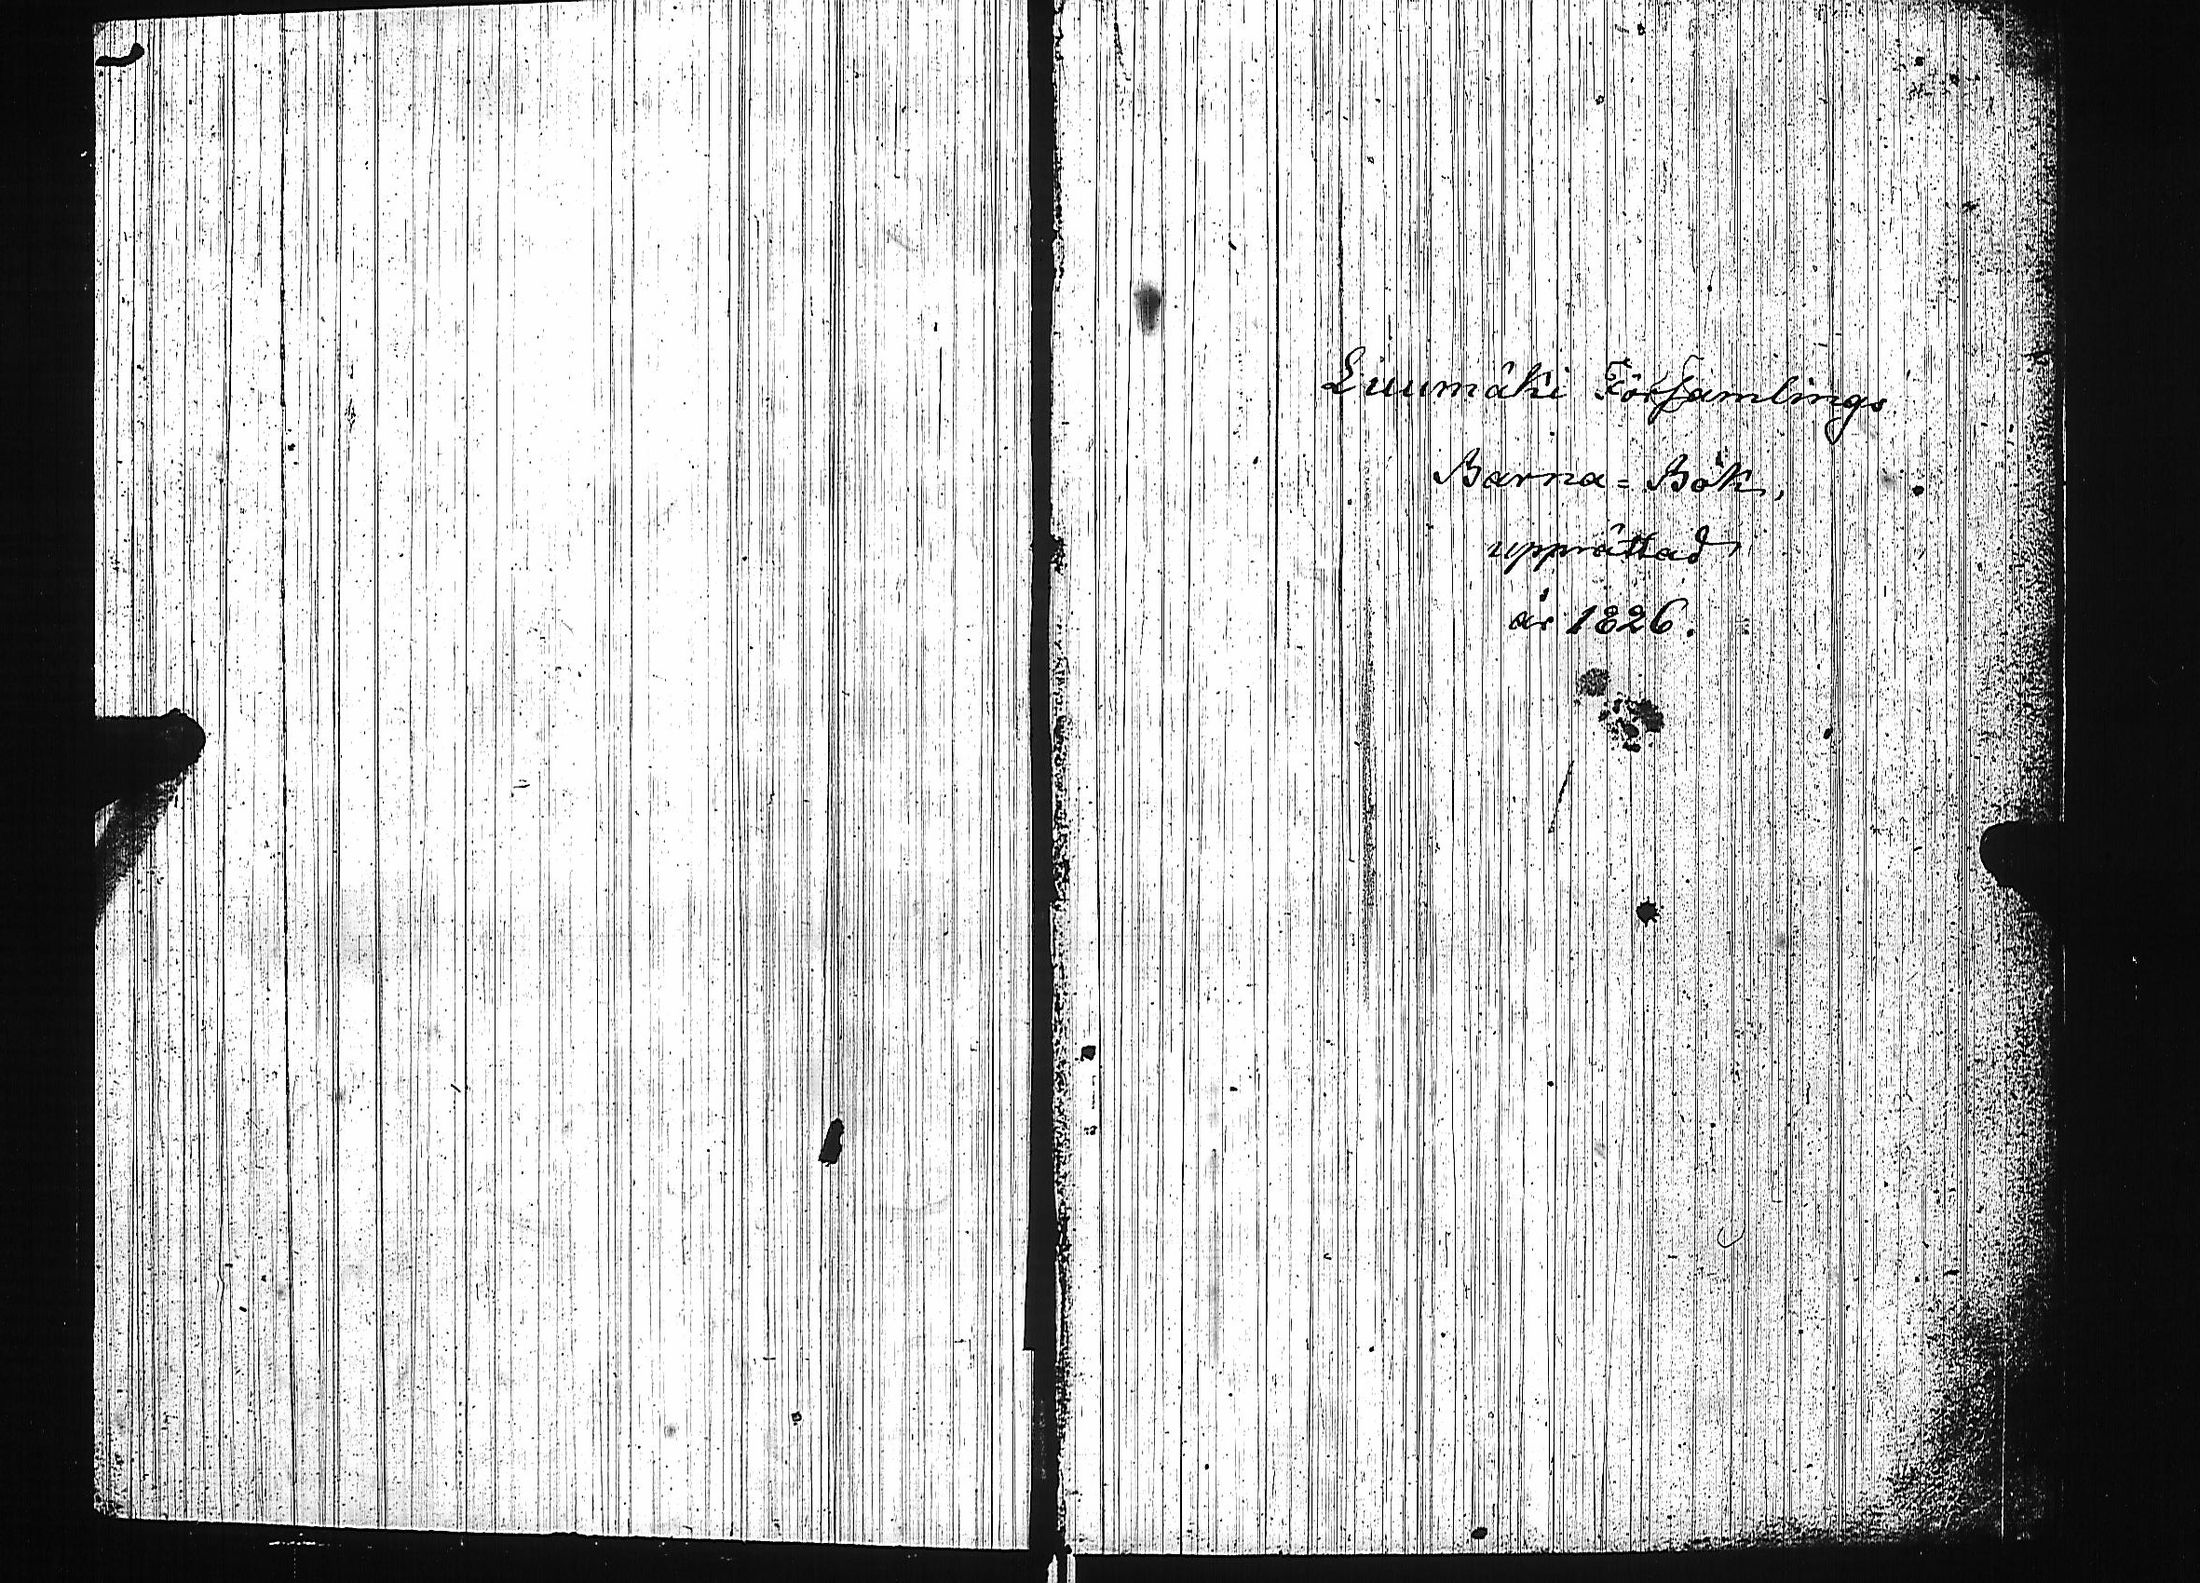 Luumäki Församlings
Barna=Bok,
upprättad
år 1826.